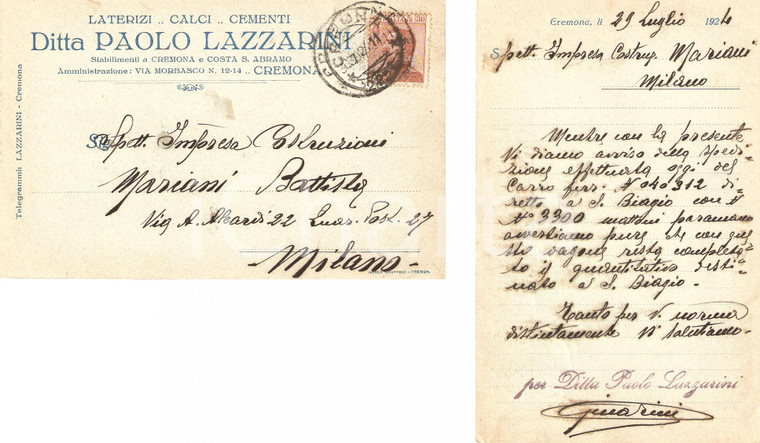 LATERIZI .. CALCI .. CEMENTI
Ditta PAOLO LAZZARINI
Stabilimenti a CREMONA e COSTA S. ABRAMO
Amministrazione: VIA MORBASCO N. 12-14 .. CREMONA
Telegrammi: LAZZARINI - Cremona
Spett. Impresa Costruzioni
Mariani Battista
Via A. 22
Milano -
Cremona, li 29 Luglio 1924
Spett. Impresa Costruz. Mariani
Milano
Mentre con la presente
Vi diamo avviso della spedi-
zione effettuata oggi del
Carro ferr. N° 040312 di-
retto a S. Biagio con
N° 3300 mattoni paramano
avvertiamo pure che con que
sto vagone resta completa-
to il quantitativo desti-
nato a S. Biagio -
Tanto per V. norma
distintamente Vi salutiamo -
per Ditta Paolo Lazzarini